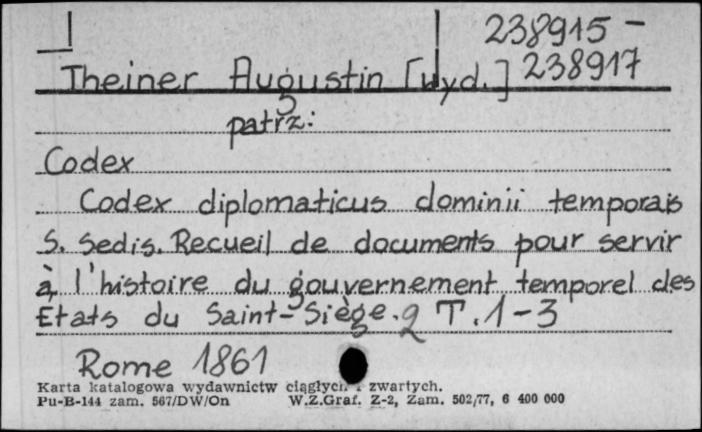 238915 -
238917
Theiner Augustin [wyd.]
patrz:
Codex
Codex diplomaticus dominii temporais
S. Sedis. Recueil de documents pour servir
à l'histoire du gouvernement temporel des
Etats du Saint-Siège. T. 1-3
Rome 1861
Karta katalogowa wydawnictw ciągłych i zwartych.
Pu-B-144 zam. 567/DW/On W.Z.Graf. Z-2, Zam. 502/77, 6 400 000